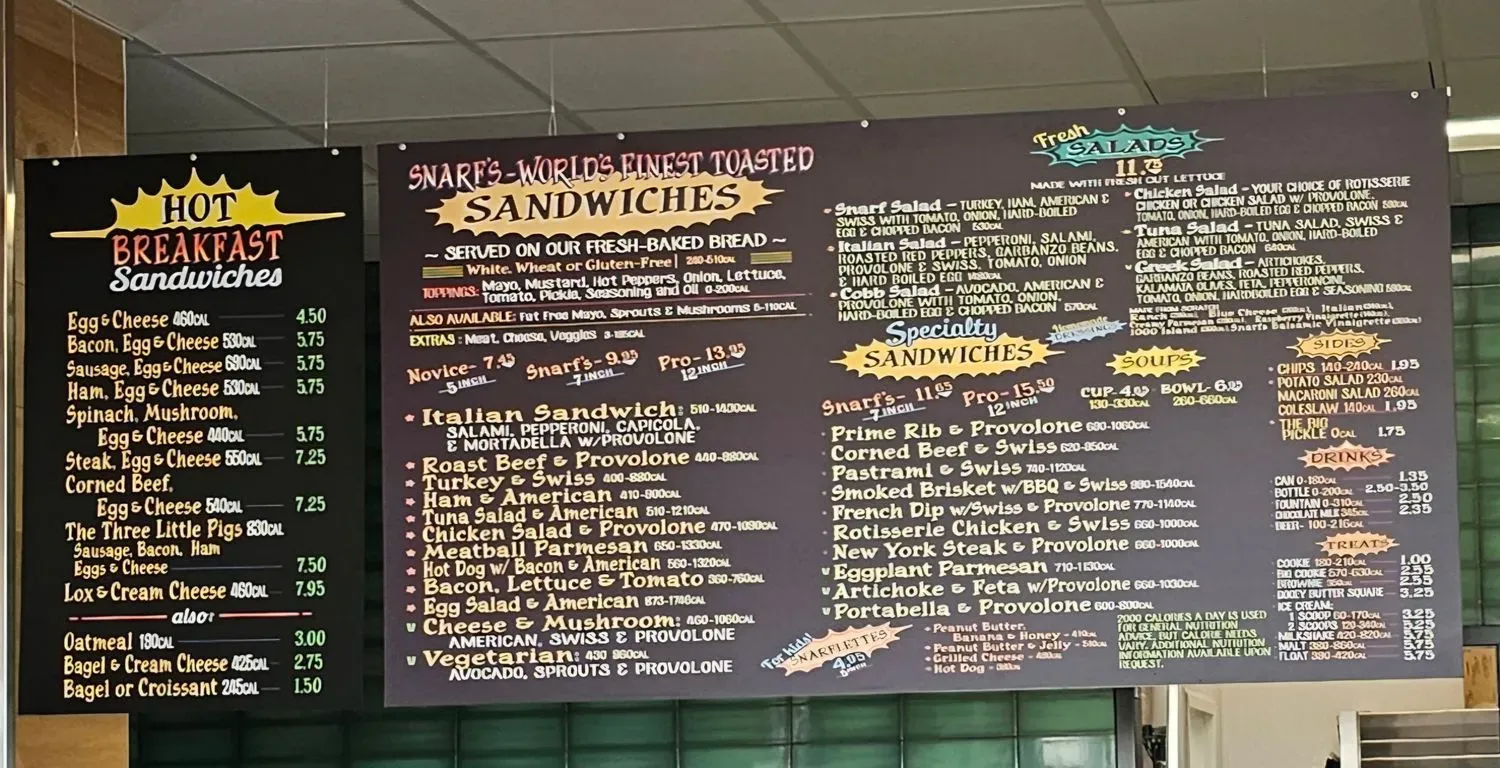 HOT
BREAKFAST
Sandwiches
Egg & Cheese 460CAL 4.50
Bacon, Egg & Cheese 530CAL 5.75
Sausage, Egg & Cheese 690CAL 5.75
Ham, Egg & Cheese 530CAL 5.75
Spinach, Mushroom,
Egg & Cheese 440CAL 5.75
Steak, Egg & Cheese 550CAL 7.25
Corned Beef,
Egg & Cheese 540CAL 7.25
The Three Little Pigs 830CAL
Sausage, Bacon, Ham
Eggs & Cheese 7.50
Lox & Cream Cheese 460CAL 7.95
also:
Oatmeal 180CAL 3.00
Bagel & Cream Cheese 425CAL 2.75
Bagel or Croissant 245CAL 1.50
SNARF'S - WORLD'S FINEST TOASTED
SANDWICHES
~ SERVED ON OUR FRESH-BAKED BREAD ~
White, Wheat or Gluten-Free | 240-510CAL
TOPPINGS: Mayo, Mustard, Hot Peppers, Onion, Lettuce,
Tomato, Pickle, Seasoning and Oil 0-200CAL
ALSO AVAILABLE: Fat Free Mayo, Sprouts & Mushrooms 5-110CAL
EXTRAS: Meat, Cheese, Veggies
Novice - 7.45
5 INCH
Snarf's - 9.95
7 INCH
Pro - 13.95
12 INCH
Italian Sandwich: 510-1400CAL
SALAMI, PEPPERONI, CAPICOLA,
& MORTADELLA W/PROVOLONE
Roast Beef & Provolone 440-880CAL
Turkey & Swiss 400-880CAL
Ham & American 410-900CAL
Tuna Salad & American 510-1210CAL
Chicken Salad & Provolone 470-1090CAL
Meatball Parmesan 650-1330CAL
Hot Dog w/ Bacon & American 560-1320CAL
Bacon, Lettuce & Tomato 360-760CAL
Egg Salad & American 873-1746CAL
V Cheese & Mushroom: 460-1060CAL
AMERICAN, SWISS & PROVOLONE
V Vegetarian: 430 960CAL
AVOCADO, SPROUTS & PROVOLONE
Fresh
SALADS
11.75
MADE WITH FRESH CUT LETTUCE
Snarf Salad - TURKEY, HAM, AMERICAN &
SWISS WITH TOMATO, ONION, HARD-BOILED
EGG & CHOPPED BACON 530CAL
Italian Salad - PEPPERONI, SALAMI,
ROASTED RED PEPPERS, GARBANZO BEANS,
PROVOLONE & SWISS, TOMATO, ONION
& HARD BOILED EGG
Cobb Salad - AVOCADO, AMERICAN &
PROVOLONE WITH TOMATO, ONION,
HARD-BOILED EGG & CHOPPED BACON 570CAL
Chicken Salad - YOUR CHOICE OF ROTISSERIE
CHICKEN OR CHICKEN SALAD W/ PROVOLONE,
TOMATO, ONION, HARD-BOILED EGG & CHOPPED BACON
Tuna Salad - TUNA SALAD, SWISS &
AMERICAN WITH TOMATO, ONION, HARD-BOILED
EGG & CHOPPED BACON 640CAL
V Greek Salad - ARTICHOKES,
GARBANZO BEANS, ROASTED RED PEPPERS,
KALAMATA OLIVES, FETA, PEPPERONCINI,
TOMATO, ONION, HARDBOILED EGG & SEASONING
Homemade
DRESSINGS
MADE FROM SCRATCH
Ranch Blue Cheese Italian
Creamy Parmesan Raspberry Vinaigrette
1000 Island Snarfs Balsamic Vinaigrette
Specialty
SANDWICHES
Snarf's - 11.65
7 INCH
Pro - 15.50
12 INCH
Prime Rib & Provolone 680-1060CAL
Corned Beef & Swiss 620-850CAL
Pastrami & Swiss 740-1120CAL
Smoked Brisket w/BBQ & Swiss 980-1540CAL
French Dip w/Swiss & Provolone 770-1140CAL
Rotisserie Chicken & Swiss 660-1000CAL
New York Steak & Provolone 660-1000CAL
V Eggplant Parmesan 710-1130CAL
V Artichoke & Feta w/Provolone 660-1030CAL
V Portabella & Provolone 600-800CAL
For kids!
SNARFLETTES
4.95
5 INCH
Peanut Butter,
Banana & Honey
Peanut Butter & Jelly
Grilled Cheese
Hot Dog
SOUPS
CUP - 4.00 BOWL - 6.00
130-330CAL 260-660CAL
2000 CALORIES A DAY IS USED
FOR GENERAL NUTRITION
ADVICE, BUT CALORIE NEEDS
VARY. ADDITIONAL NUTRITION
INFORMATION AVAILABLE UPON
REQUEST.
SIDES
CHIPS 140-240CAL 1.95
POTATO SALAD 230CAL
MACARONI SALAD 260CAL
COLESLAW 140CAL 1.95
THE BIG
PICKLE 0CAL 1.75
DRINKS
CAN 0-180CAL 1.35
BOTTLE 0-200CAL 2.50-3.50
FOUNTAIN 0-310CAL 2.50
CHOCOLATE MILK 345CAL 2.35
BEER - 100-216CAL
TREATS
COOKIE 180-210CAL 1.00
BIG COOKIE 570-630CAL 2.35
BROWNIE 350CAL 2.55
OOEY BUTTER SQUARE 3.25
ICE CREAM:
1 SCOOP 60-170CAL 3.25
2 SCOOPS 120-340CAL 5.25
MILKSHAKE 420-820CAL 5.75
MALT 380-860CAL 5.75
FLOAT 390-420CAL 5.75